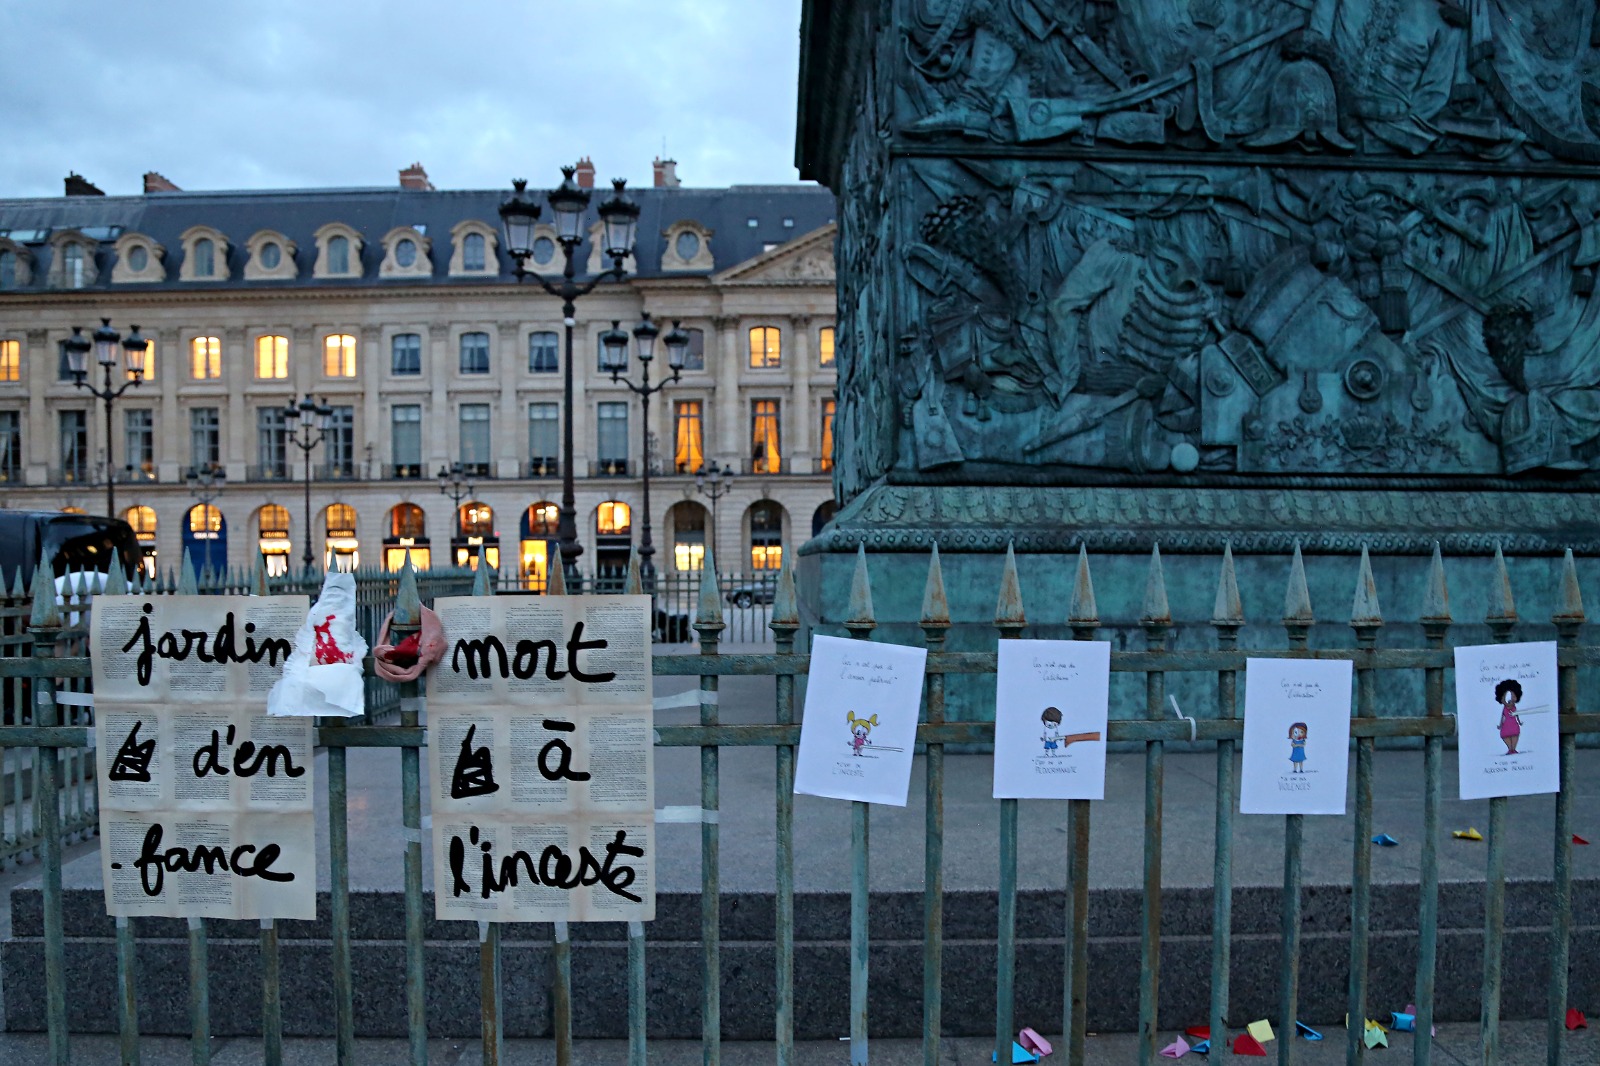 jardin
d'en
-fance
mort
à
l'inceste
Ceci n'est pas de
l'amour paternel*
*C'est de
L'INCESTE
Ceci n'est pas du
*C'est de la
PÉDOCRIMINALITÉ
Ceci n'est pas de
l'éducation*
VIOLENCES
Ceci n'est pas une
drague lourde*
*C'est une
AGRESSION SEXUELLE